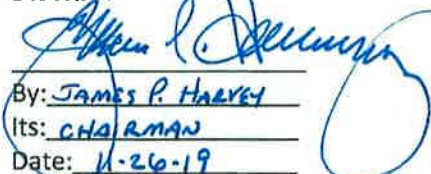 By: JAMES P. HARVEY
Its: CHAIRMAN
Date: 11-26-19